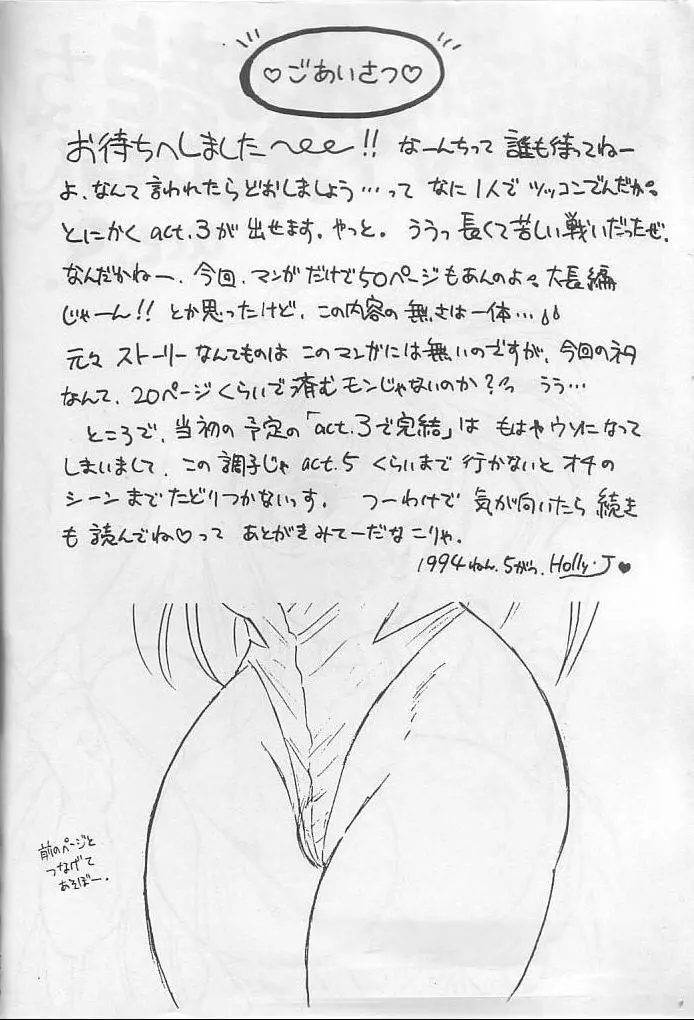 ♡ごあいさつ♡
お待ちへしました〜!! なーんちって 誰も待ってねー
よ、なんて言われたらどおしましょう…って なに1人で ツッコンでんだか。
とにかく act.3が 出せます。やっと。 ううっ 長くて苦しい戦いだったぜ。
なんだかねー、今回、マンガだけで50ページもあんのよ。大長編
じゃーん!! とか思ったけど、この内容の無さは一体…
元々 ストーリーなんてものは このマンガには無いのですが、今回のネタ
なんて、20ページくらいで済むモンじゃないのか? うう…
ところで、当初の予定の「act.3で完結」は もはやウソになって
しまいまして、この調子じゃ act.5 くらいまで 行かないと オチの
シーンまでたどりつかないっす。 つーわけで 気が向いたら 続き
も 読んでね♡って あとがきみてーだな こりゃ。
1994ねん.5がつ. Holly・J♥
前のページと
つなげて
あそぼー。